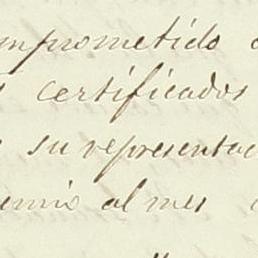 mprometido
certificados
su representac
emio al mes